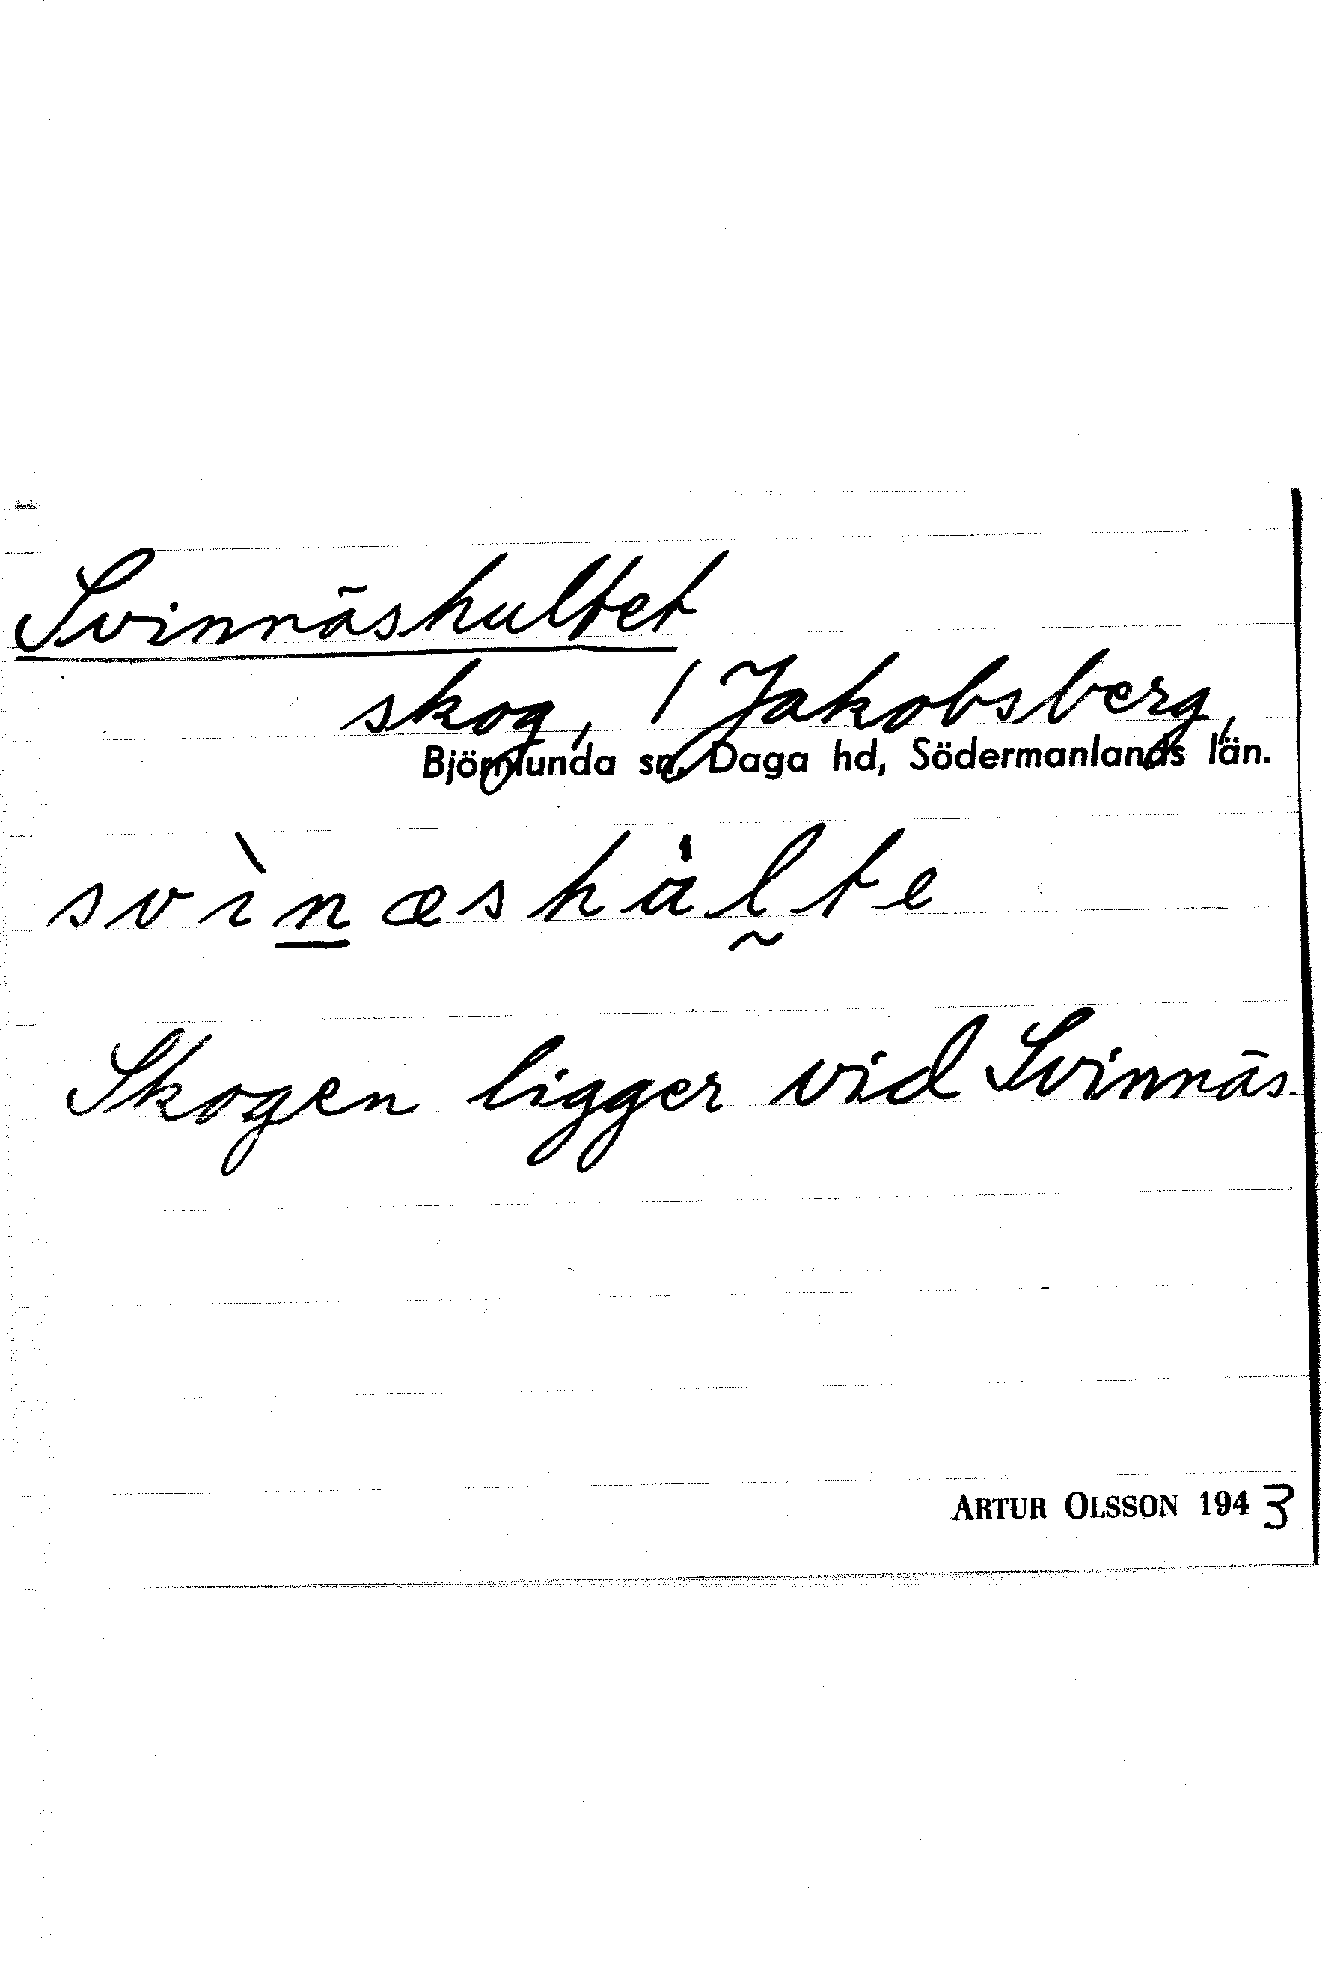 Svinnäshultet
skog, / Jakobsberg,
Björnlunda sn, Daga hd, Södermanlands län.
svìn̲æshȧl̰te
Skogen ligger vid Svinnäs.
ARTUR OLSSON 1943